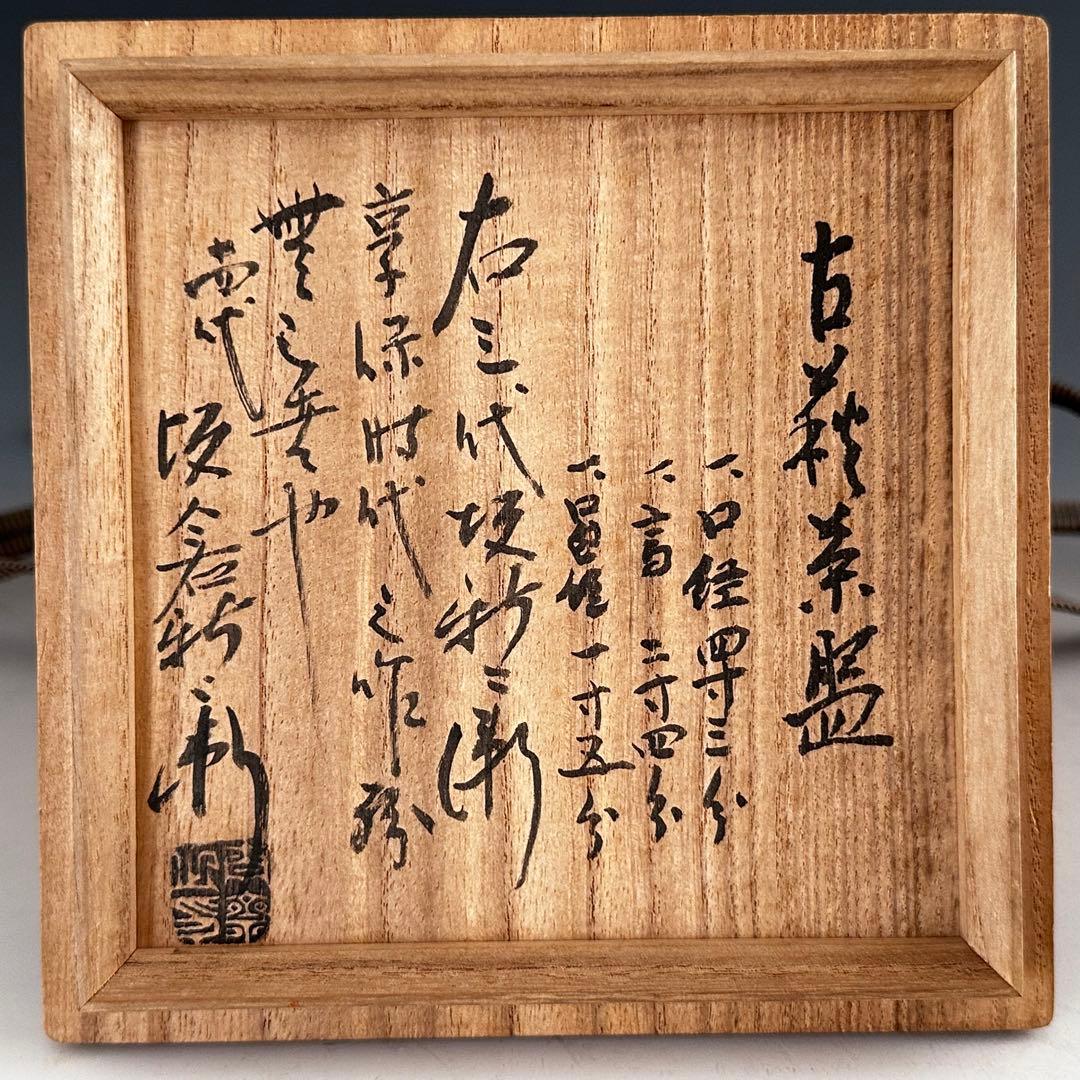 古萩茶盌
一、口径四寸三分
一、高 二寸四分
一、高台径 一寸五分
右三代坂新兵衛
享保時代之作
無之者也
坂倉新兵衛